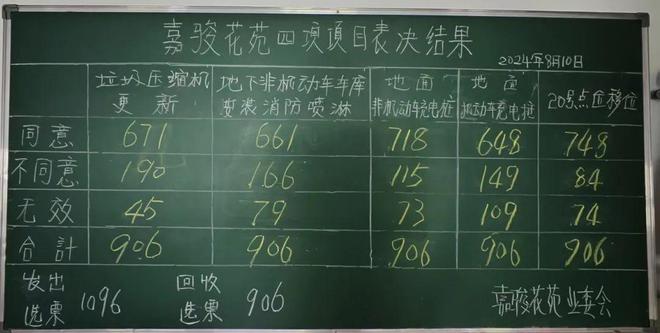 嘉骏花苑四项项目表决结果
2024年8月10日
垃圾压缩机更新 地下非机动车车库安装消防喷淋 地面非机动车充电桩 地面机动车充电桩 20号点位移位
同意 671 661 718 648 748
不同意 190 166 115 149 84
无效 45 79 73 109 74
合計 906 906 906 906 906
发出选票 1096 回收选票 906 嘉骏花苑业委会